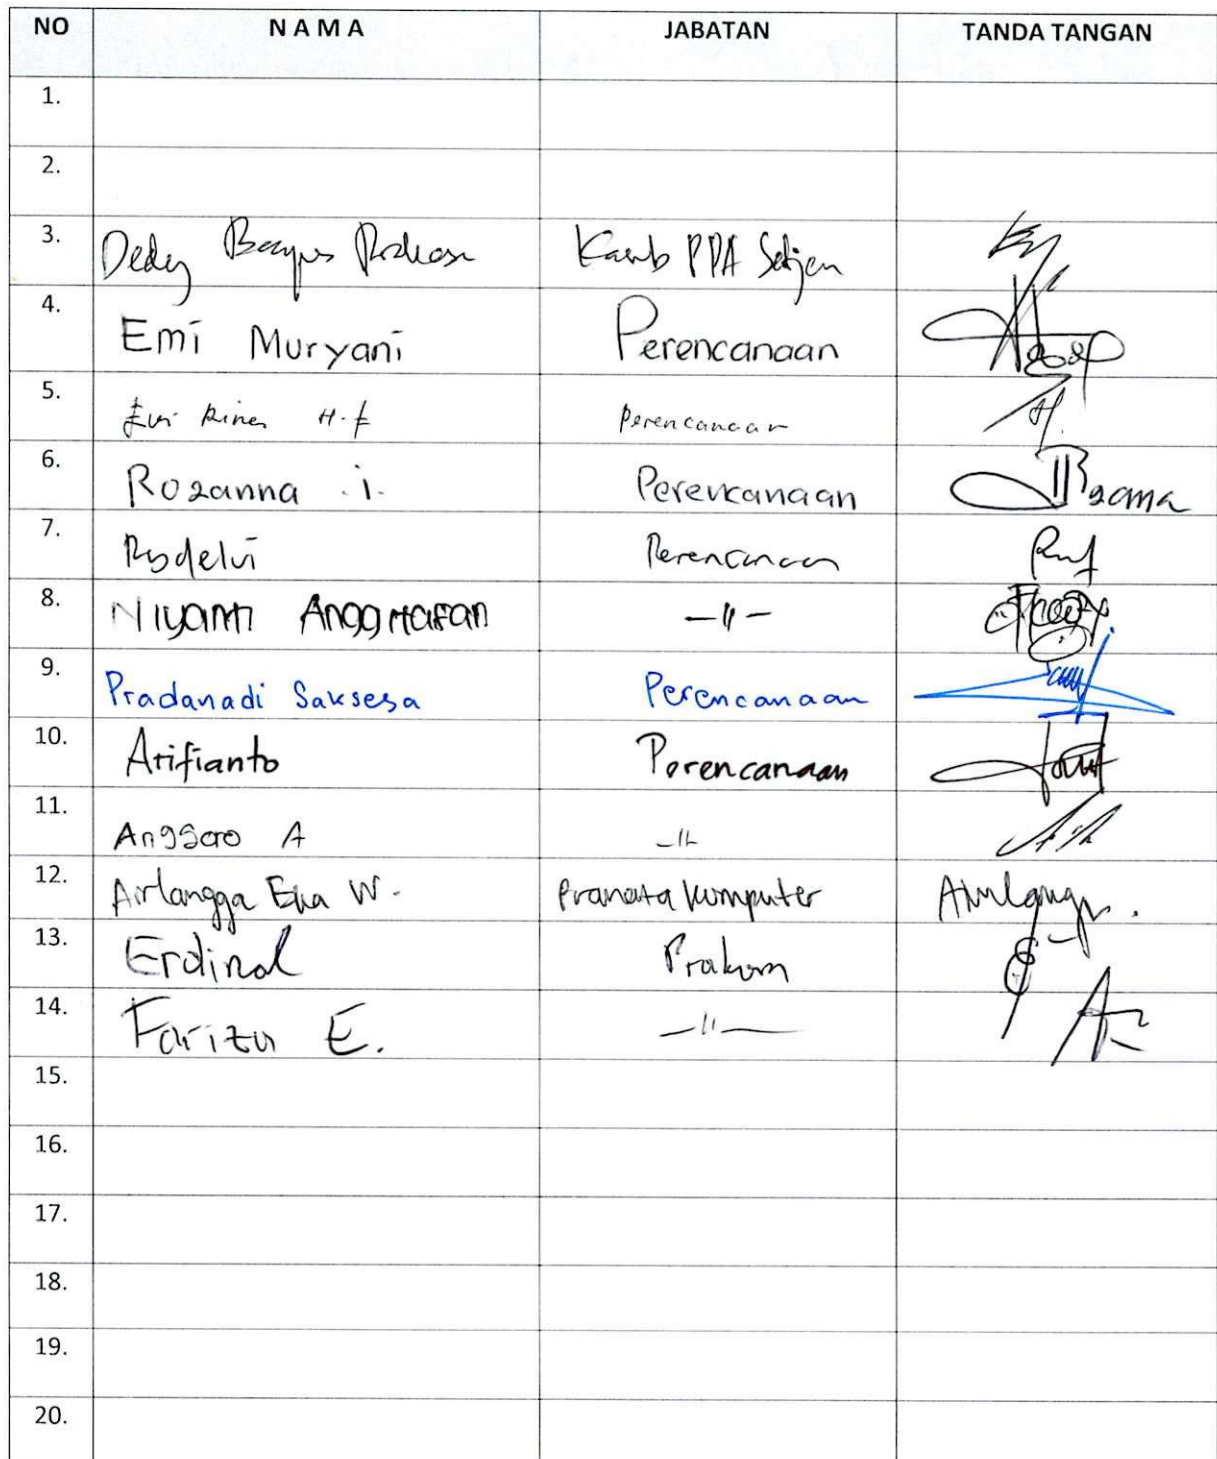 NO NAMA JABATAN TANDA TANGAN
1.
2.
3. Dedey Bagus Kasub PPA Setjen
4. Emi Muryani Perencanaan
5. Evi H.F Perencanaan
6. Rozanna .i. Perencanaan
7. Rosdelvi Perencanaan
8. Niyanti Anggitasari —"—
9. Pradanadi Saksesa Perencanaan
10. Arifianto Perencanaan
11. Anggoro A —"—
12. Airlangga Eka W. Pranata Komputer
13. Erdinal Prakom
14. Fariza E. —"—
15.
16.
17.
18.
19.
20.